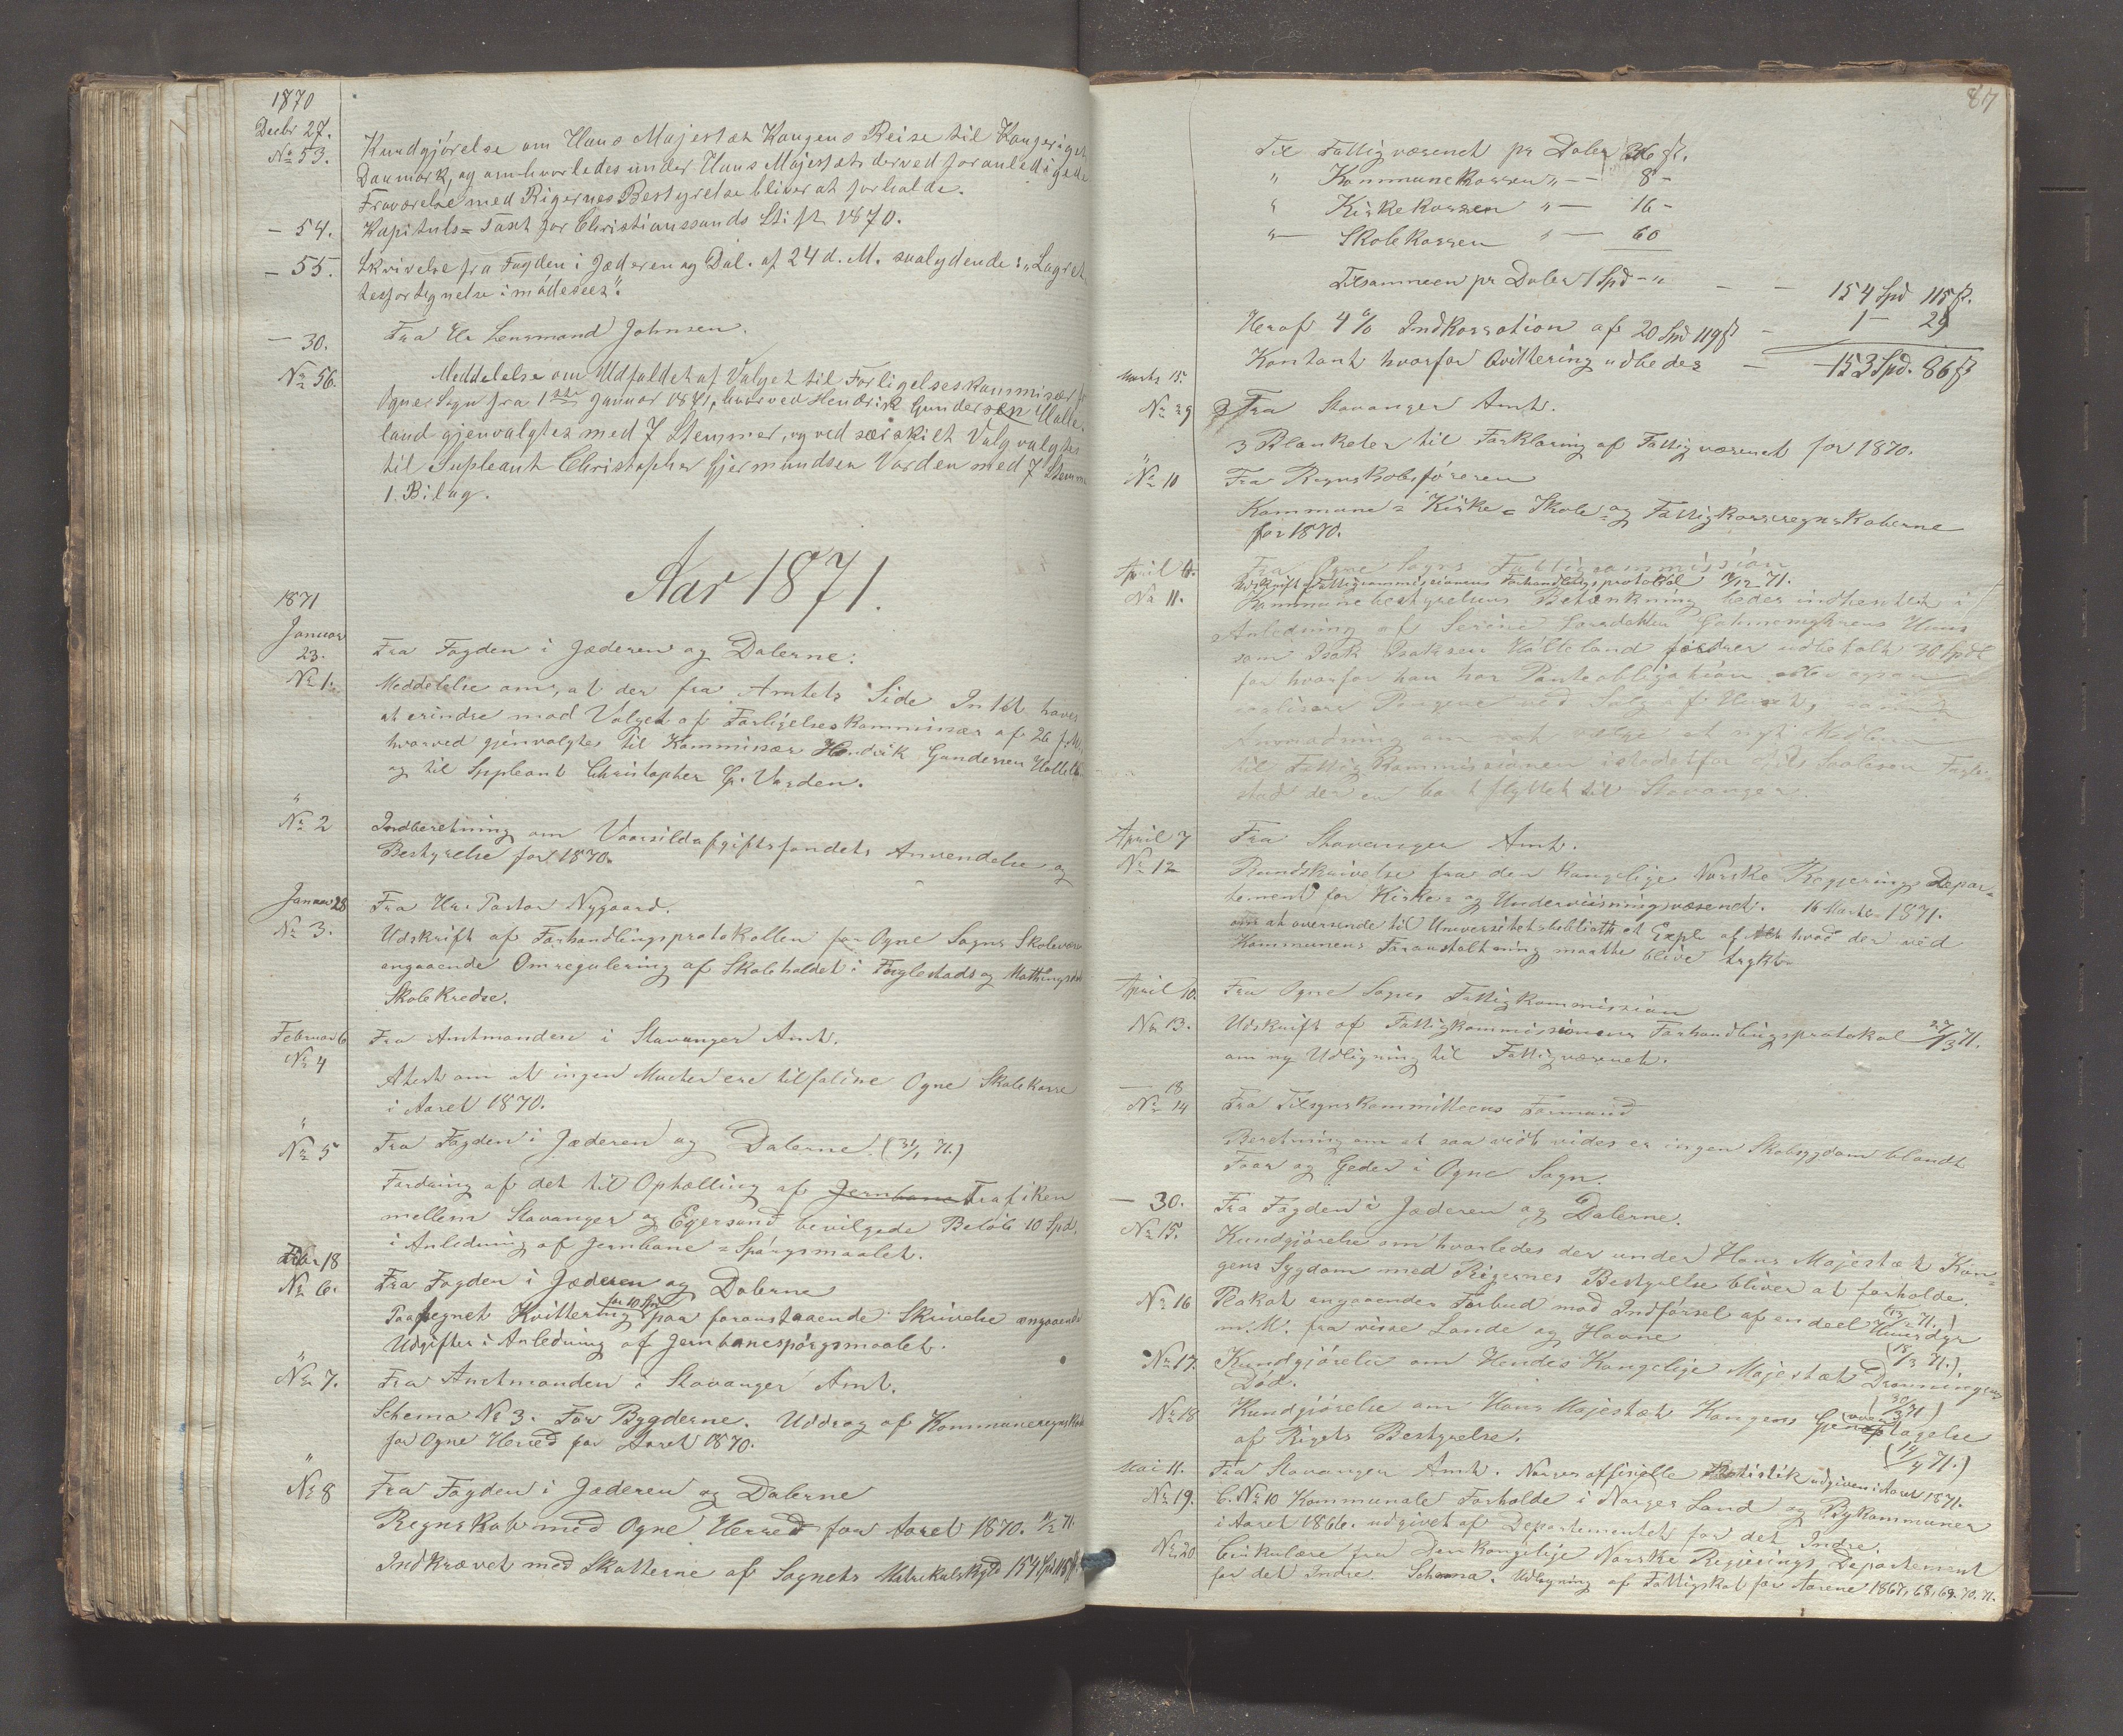 1870
Decbr 27.
No 53. Kundgjörelse om Hans Majestæt Kongens Reise til Kongeriget
Danmark, og om hvorledes under Hans Majestæts derved foranledigede
Fraværelse med Rigernes Bestyrelse bliver at forholde.
— 54. Kapituls=Taxt for Christianssands Stift 1870.
— 55. Skrivelse fra Fogden i Jæderen og Dal. af 24 d. M. saalydende: „Lagret
tesfortegnelse imödesees".
— 30. Fra Hr Lensmand Johnsen.
No 56. Meddelelse om Udfaldet af Valget til Forligelseskommisær for
Ogne Sogn fra 1ste Januar 1871, hvorved Hendrik Gundersen Halle-
land gjenvalgtes med 7 Stemmer, og ved særskilt Valg valgtes
til Supleant Christopher Gjermundsen Varden med 7 Stemmer
1. Bilag.
Aar 1871.
1871
Januar
23. Fra Fogden i Jæderen og Dalerne:
No 1. Meddelelse om, at der fra Amtets Side Intet haves
at erindre mod Valget af Forligelseskommissær af 26 f. M.
hvorved gjenvalgtes til Kommissær Hendrik Gundersen Hallela
og til Suppleant Christopher G. Varden.
"
No 2 Indberetning om Vaarsildafgiftsfondets Anvendelse og
Bestyrelse for 1870.
Januar 28 Fra Hr. Pastor Nygaard.
No 3. Udskrift af Forhandlingsprotokollen for Ogne Sogns Skolevæsen
angaaende Omregulering af Skoleholdet i Fuglestads og Mathingsdals
Skolekredse.
Februar 6 Fra Amtmanden i Stavanger Amt.
No 4 Atest om at ingen Mulcter ere tilfaldne Ogne Skolekasse
i Aaret 1870.
"
No 5 Fra Fogden i Jæderen og Dalerne. (31/1 71.)
Fordring af det til Optælling af Jernbane Trafiken
mellem Stavanger og Egersund bevilgede Beløb 10 Spd.
i Anledning af Jernbane=Spörgsmaalet.
Febr 18
No 6. Fra Fogden i Jæderen og Dalerne
Paategnet Kvittering for 10 Spd paa foranstaaende Skrivelse angaaende
Udgifter i Anledning af Jernbanespörgsmaalet.
"
No 7. Fra Amtmanden i Stavanger Amt.
Schema No 3. For Bygderne. Uddrag af Kommuneregnskab
for Ogne Herred for Aaret 1870.
"
No 8 Fra Fogden i Jæderen og Dalerne
Regnskab med Ogne Herred for Aaret 1870. 11/2 71.
Indkrævet med Skatterne af Sognets Matrikulskyld 154 Spd 115 ß.
87
Til Fattigvæsenet pr Daler 36 ß.
" Kommunekassen " — 8 -
" Kirkekassen " — 16 -
" Skolekassen " — 60
Tilsammen pr Daler 1 Spd - " — — 154 Spd 115 ß.
Heraf 4% Indkassation af 20 Spd 119 ß — 1 — 29
Kontant hvorfor Qvittering udbedes — 153 Spd. 86 ß
Marts 15.
No 9 Fra Stavanger Amt.
3 Blanketer til Forklaring af Fattigvæsenet for 1870.
"
No 10 Fra Regnskabsföreren
Kommune= Kirke= Skole= og Fattigkasseregnskaberne
for 1870.
April 4. Fra Ogne Sogns Fattigcommission
Udskrift af Fattigcommissionens Forhandlingsprotokol
No 11. Kommunebestyrelsens Betænkning bedes indhentet i
Anledning af Serine Larsdatter Huus
som Isak Isaksen Halleland fordrer udbetalt 30 Spdl
for hvorfor han har Panteobligation
realisere Pengene ved Salg af Huset,
Anmodning om at vælge et nyt Medlem
til Fattigkommissionen istedetfor Nils Saalesen Fugle-
stad der er bortflyttet til Stavanger.
April 7 Fra Stavanger Amt.
No 12 Rundskrivelse fra den kongelige Norske Regjerings Depar-
tement for Kirke= og Underviisningsvæsenet. 16 Marts 1871.
om at oversende til Universitetsbibliothek et Expl. af Alt hvad der ved
Kommunens Foranstaltning maatte blive trykt.
April 10. Fra Ogne Sogns Fattigkommission
No 13. Udskrift af Fattigkommissionens Forhandlingsprotokol 27/3 71.
om ny Udligning til Fattigvæsenet.
— 18
No 14 Fra Tilsynskommitteens Formand
Beretning om at saavidt vides er ingen Skabsygdom blandt
Faar og Geder i Ogne Sogn.
— 30. Fra Fogden i Jæderen og Dalerne.
No 15. Kundgjörelse om hvorledes der under Hans Majestæt Kon-
gens Sygdom med Rigernes Bestyrelse bliver at forholde.
No 16 Plakat angaaende Forbud mod Indförsel af en deel Huusdyr
m. M. fra visse Lande og Havne
No 17. Kundgjörelse om Hendes Kongelige Majestæt Dronningens (18/3 71.)
Död. (30/3 71)
No 18 Kundgjörelse om Hans Majestæt Kongens Gjenovertagelse
af Rigets Bestyrelse. (14/4 71.)
Mai 11. Fra Stavanger Amt. Norges officielle Statistik udgiven i Aaret 1871.
No 19. C. No 10 Kommunale Forholde i Norges Land og Bykommuner
i Aaret 1866. udgivet af Departementet for det Indre.
No 20 Cirkulære fra Den kongelige Norske Regjerings Departement
for det Indre. Schema. Udligning af Fattigskat for Aarene 1867, 68, 69. 70. 71.